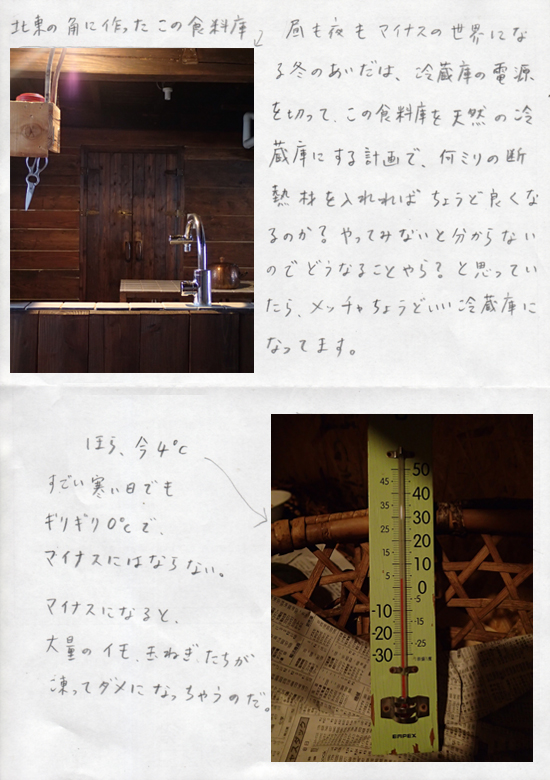 北東の角に作ったこの食料庫
昼も夜もマイナスの世界にな
る冬のあいだは、冷蔵庫の電源
を切って、この食料庫を天然の冷
蔵庫にする計画で、何ミリの断
熱材を入れれば ちょうど良くな
るのか？やってみないと分からない
のでどうなることやら？と思ってい
たら、メッチャちょうどいい冷蔵庫に
なってます。
ほら、今4℃
すごい寒い日でも
ギリギリ0℃で、
マイナスにはならない。
マイナスになると、
大量のイモ、玉ねぎ、たちが
凍ってダメになっちゃうのだ。
50
45
40
35
30
25
20
15
10
5
0
5
-10
15
-20
-25
-30
EMPEX